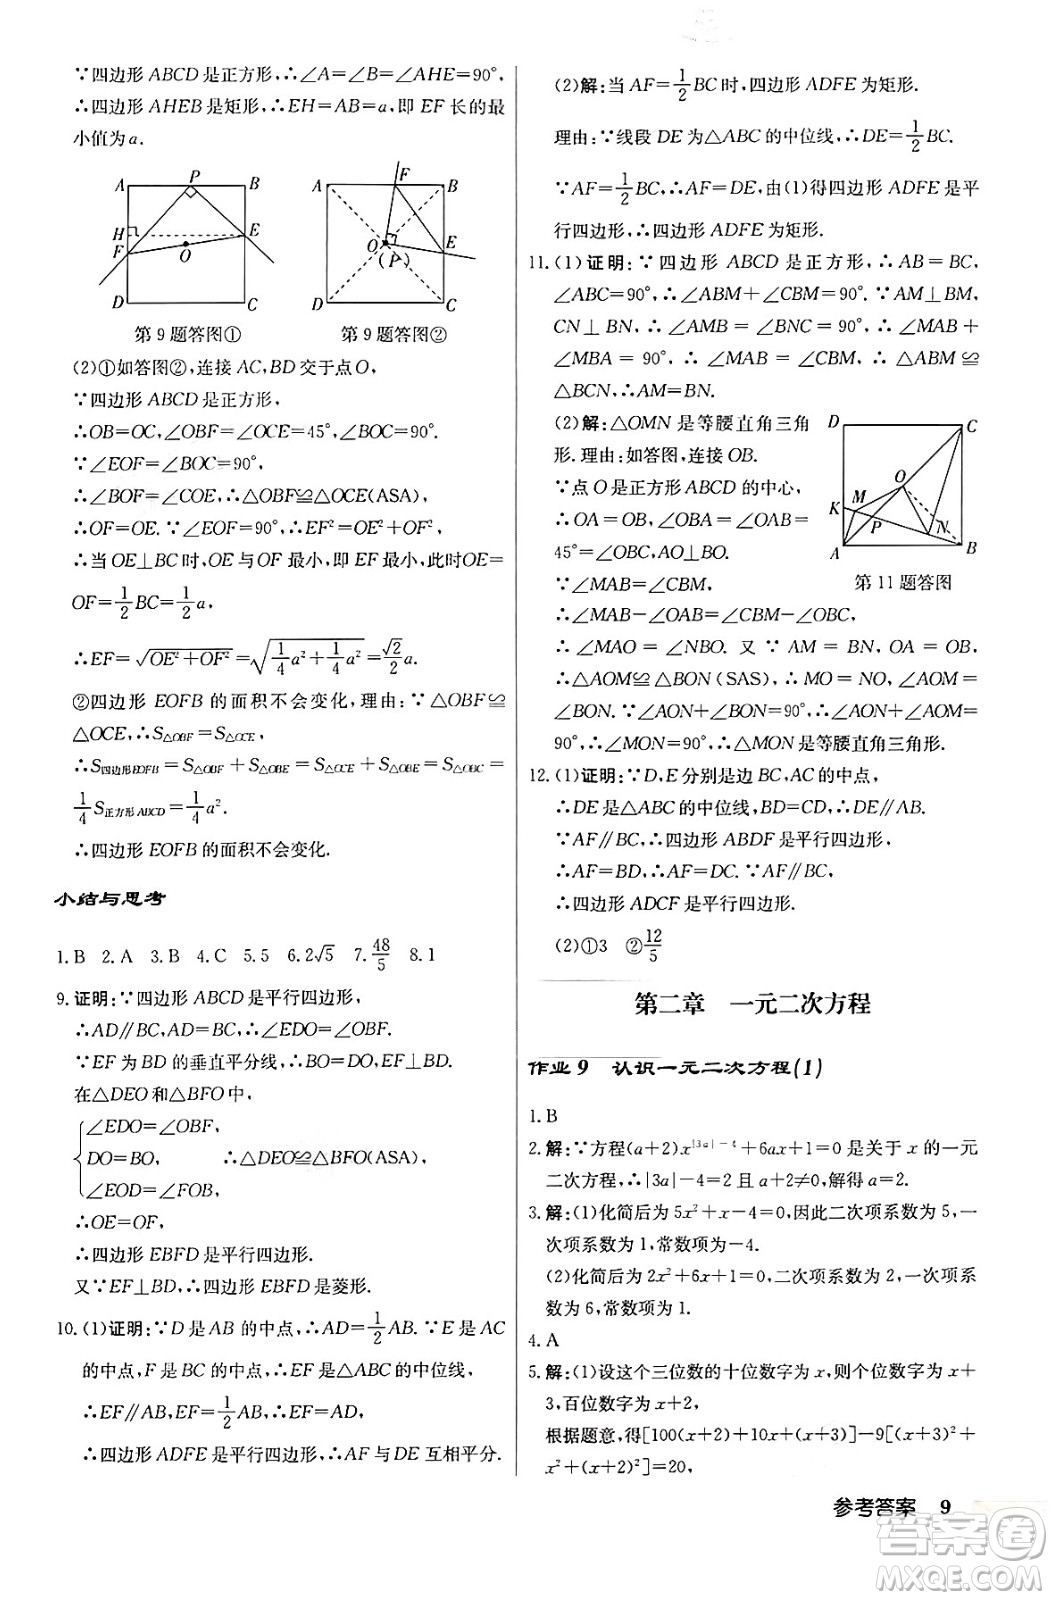 ∵四边形 ABCD 是正方形,∴∠A=∠B=∠AHE=90°,
∴四边形 AHEB 是矩形,∴EH=AB=a,即 EF 长的最
小值为 a.
A P B
H E
F O
D C
第 9 题答图①
A F B
O E
(P)
D C
第 9 题答图②
(2)①如答图②,连接 AC,BD 交于点 O,
∵四边形 ABCD 是正方形,
∴OB=OC,∠OBF=∠OCE=45°,∠BOC=90°.
∵∠EOF=∠BOC=90°,
∴∠BOF=∠COE,∴△OBF≌△OCE(ASA),
∴OF=OE.∵∠EOF=90°,∴EF²=OE²+OF²,
∴当 OE⊥BC 时,OE 与 OF 最小,即 EF 最小,此时OE=
OF=1/2BC=1/2a,
∴EF=√(OE²+OF²)=√(1/4a²+1/4a²)=√2/2a.
②四边形 EOFB 的面积不会变化.理由:∵△OBF≌
△OCE,∴S△OBF=S△OCE,
∴S四边形EOFB=S△OBF+S△OBE=S△OCE+S△OBE=S△OBC=
1/4S正方形ABCD=1/4a².
∴四边形 EOFB 的面积不会变化.
小结与思考
1.B 2.A 3.B 4.C 5.5 6.2√5 7.48/5 8.1
9.证明:∵四边形 ABCD 是平行四边形,
∴AD∥BC,AD=BC,∴∠EDO=∠OBF.
∵EF 为 BD 的垂直平分线,∴BO=DO,EF⊥BD.
在△DEO 和△BFO 中,
{∠EDO=∠OBF,
DO=BO, ∴△DEO≌△BFO(ASA),
∠EOD=∠FOB,
∴OE=OF,
∴四边形 EBFD 是平行四边形.
又∵EF⊥BD,∴四边形 EBFD 是菱形.
10.(1)证明:∵D 是 AB 的中点,∴AD=1/2AB.∵E 是 AC
的中点,F 是 BC 的中点,∴EF 是△ABC 的中位线,
∴EF∥AB,EF=1/2AB,∴EF=AD,
∴四边形 ADFE 是平行四边形,∴AF 与 DE 互相平分.
(2)解:当 AF=1/2BC 时,四边形 ADFE 为矩形.
理由:∵线段 DE 为△ABC 的中位线,∴DE=1/2BC.
∵AF=1/2BC,∴AF=DE,由(1)得四边形 ADFE 是平
行四边形,∴四边形 ADFE 为矩形.
11.(1)证明:∵四边形 ABCD 是正方形,∴AB=BC,
∠ABC=90°,∴∠ABM+∠CBM=90°.∵AM⊥BM,
CN⊥BN,∴∠AMB=∠BNC=90°,∴∠MAB+
∠MBA=90°,∴∠MAB=∠CBM,∴△ABM≌
△BCN,∴AM=BN.
(2)解:△OMN 是等腰直角三角
形.理由:如答图,连接 OB.
∵点 O 是正方形 ABCD 的中心,
∴OA=OB,∠OBA=∠OAB=
45°=∠OBC,AO⊥BO.
D C
O
M
K
P N
A B
第 11 题答图
∵∠MAB=∠CBM,
∴∠MAB-∠OAB=∠CBM-∠OBC,
∴∠MAO=∠NBO.又∵AM=BN,OA=OB,
∴△AOM≌△BON(SAS),∴MO=NO,∠AOM=
∠BON.∵∠AON+∠BON=90°,∴∠AON+∠AOM=
90°,∴∠MON=90°,∴△MON 是等腰直角三角形.
12.(1)证明:∵D,E 分别是边 BC,AC 的中点,
∴DE 是△ABC 的中位线,∴DE∥AB.
∵AF∥BC,∴四边形 ABDF 是平行四边形,
∴AF=BD,∴AF=DC.∵AF∥BC,
∴四边形 ADCF 是平行四边形.
(2)①3 ②12/5
第二章 一元二次方程
作业 9 认识一元二次方程(1)
1.B
2.解:∵方程(a+2)x^(|3a|-4)+6ax+1=0 是关于 x 的一元
二次方程,∴|3a|-4=2 且 a+2≠0,解得 a=2.
3.解:(1)化简后为 5x²+x-4=0,因此二次项系数为 5,一
次项系数为 1,常数项为-4.
(2)化简后为 2x²+6x+1=0,二次项系数为 2,一次项系
数为 6,常数项为 1.
4.A
5.解:(1)设这个三位数的十位数字为 x,则个位数字为 x+
3,百位数字为 x+2,
根据题意,得[100(x+2)+10x+(x+3)]-9[(x+2)²+
x²+(x+3)²]=20,
参考答案 9
答案圈
MXQE.COM